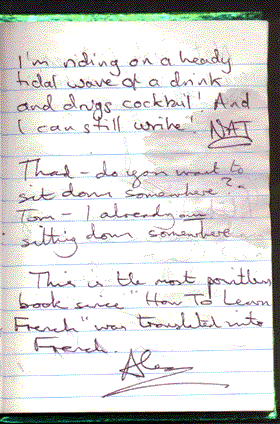 I'm riding on a heady
tidal wave of a drink
and drugs cocktail! And
I can still write! NAT
Thad - do you want to
sit down somewhere?
Tom - I already am
sitting down somewhere
This is the most pointless
book since "How To Learn
French" was translated into
French.
Alex